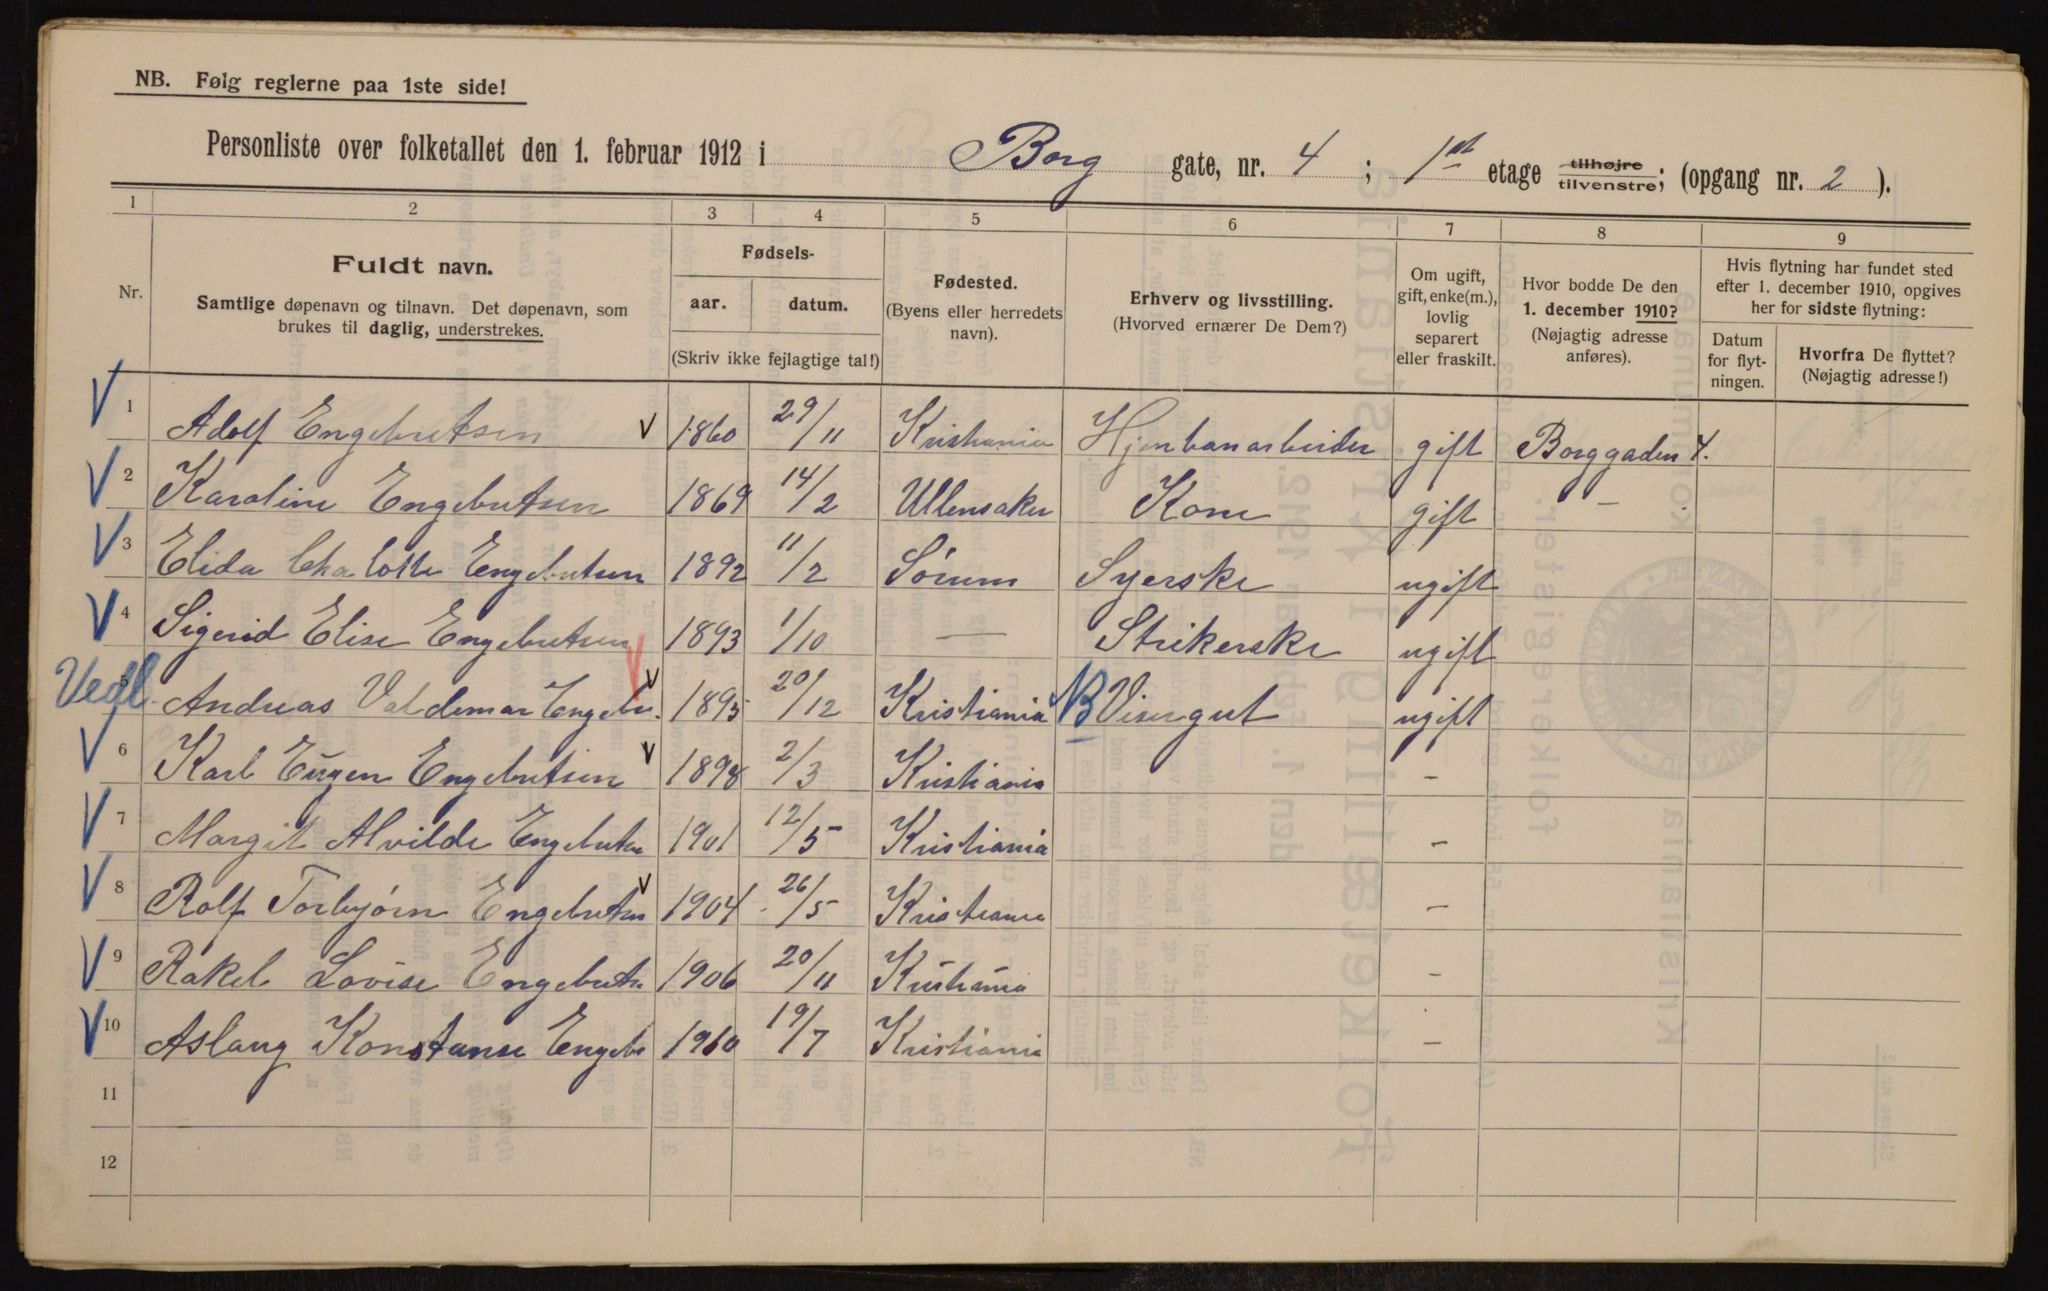 NB. Følg reglerne paa 1ste side!
Personliste over folketallet den 1. februar 1912 i Borg gate, nr. 4 ; 1st etage tilhøjre tilvenstre; (opgang nr. 2 ).
1 2 3 4 5 6 7 8 9
Nr.
Fuldt navn.
Samtlige døpenavn og tilnavn. Det døpenavn, som
brukes til daglig, understrekes.
Fødsels-
aar. datum.
(Skriv ikke fejlagtige tal!)
Fødested.
(Byens eller herredets
navn).
Erhverv og livsstilling.
(Hvorved ernærer De Dem?)
Om ugift,
gift, enke(m.),
lovlig
separert
eller fraskilt.
Hvor bodde De den
1. december 1910?
(Nøjagtig adresse
anføres).
Hvis flytning har fundet sted
efter 1. december 1910, opgives
her for sidste flytning:
Datum
for flyt-
ningen.
Hvorfra De flyttet?
(Nøjagtig adresse!)
V 1 Adolf Engebretsen V 1860 29/11 Kristiania Hjernbanarbeider gift Borggaden 4.
V 2 Karoline Engebretsen 1869 14/2 Ullensaker Kone gift —
V 3 Elida Charlotte Engebretsen 1892 11/2 Sörum Syerske ugift
V 4 Sigerid Elise Engebretsen 1893 1/10 — Strikerske ugift
Vedl. Andreas Valdemar Engebr. V V 1895 20/12 Kristiania NB Visergut ugift
V 6 Karl Eugen Engebretsen V 1898 2/3 Kristiania -
V 7 Margit Alvilde Engebretsen 1901 12/5 Kristiania -
V 8 Rolf Torbjörn Engebretsen V 1904 26/5 Kristiania -
V 9 Rakel Lovise Engebretsen 1906 20/11 Kristiania -
V 10 Aslaug Konstanse Engebr 1910 19/7 Kristiania -
11
12